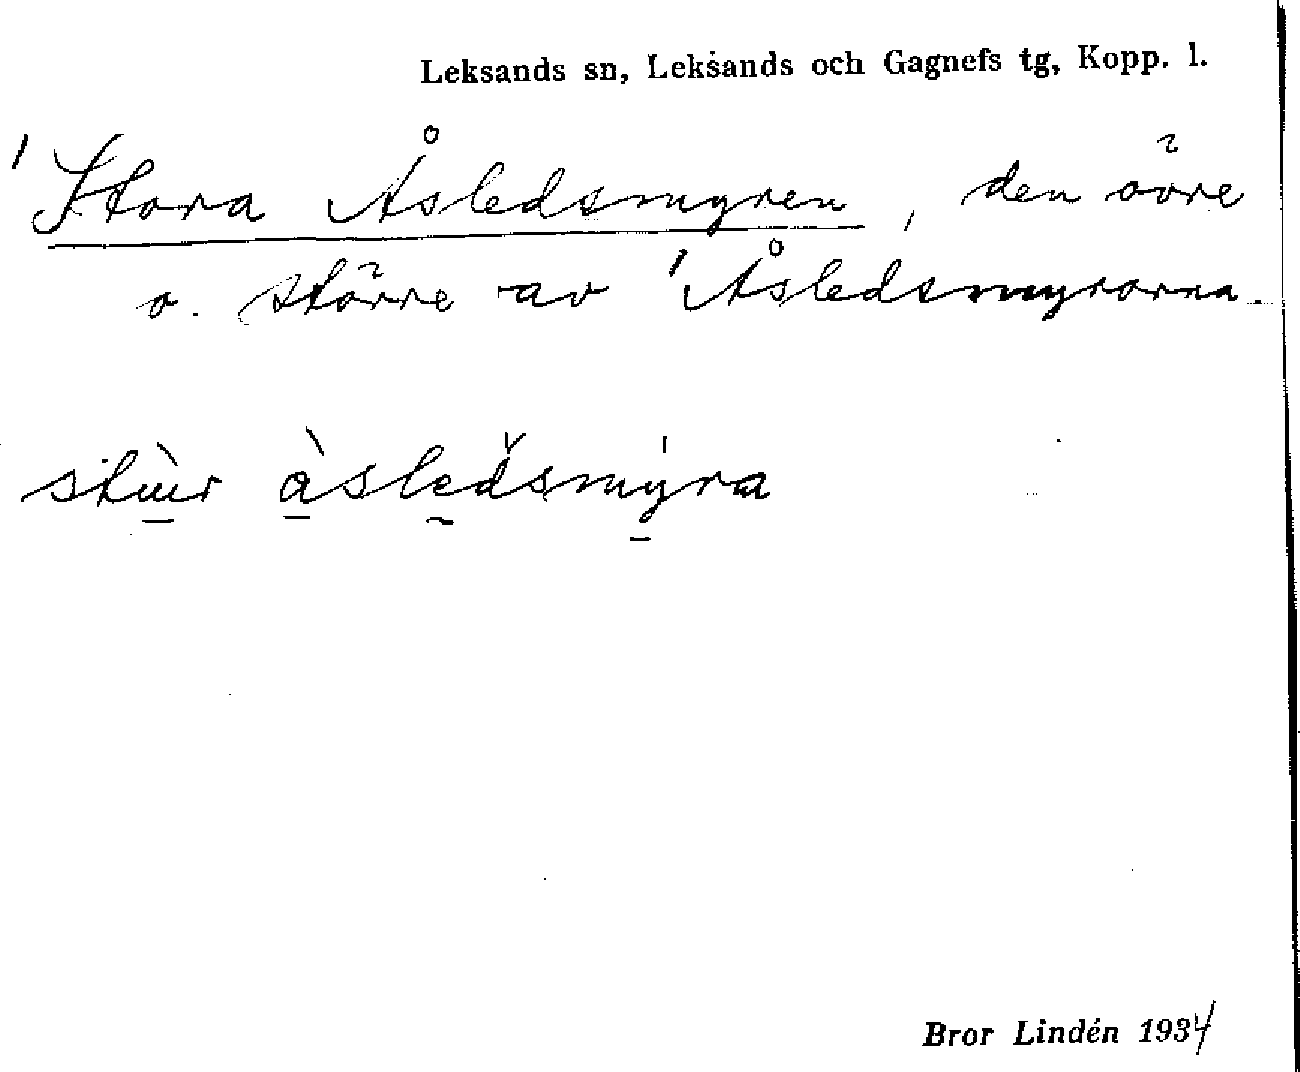 Leksands sn, Leksands och Gagnefs tg, Kopp. l.
' Stora Åsledsmyren, den övre
o. större av ' Åsledsmyrarna.
stùr àsledsmýra
Bror Lindén 1934